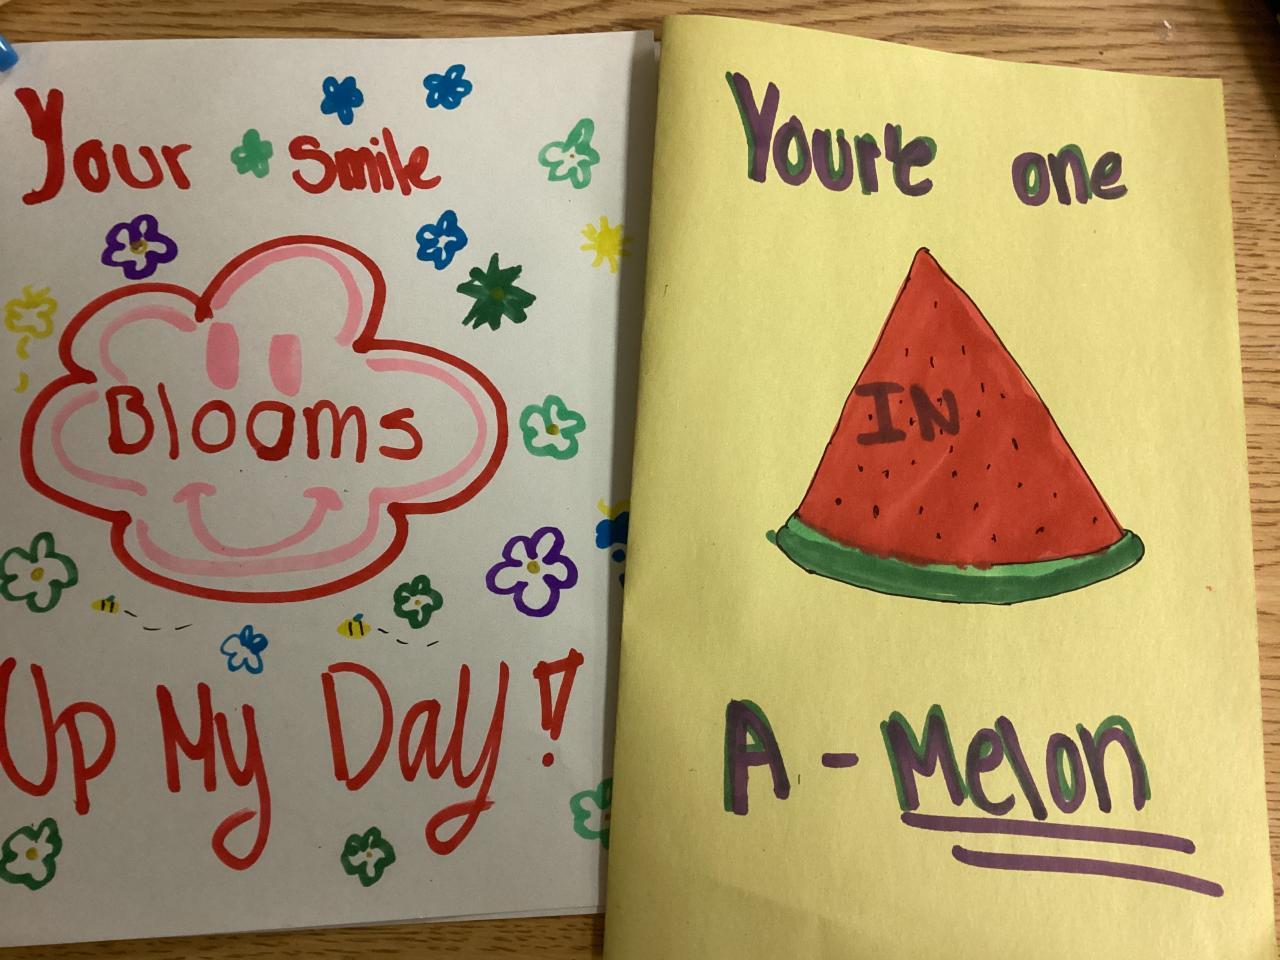 Your smile
Blooms
Up My Day!
Your'e one
IN
A - Melon